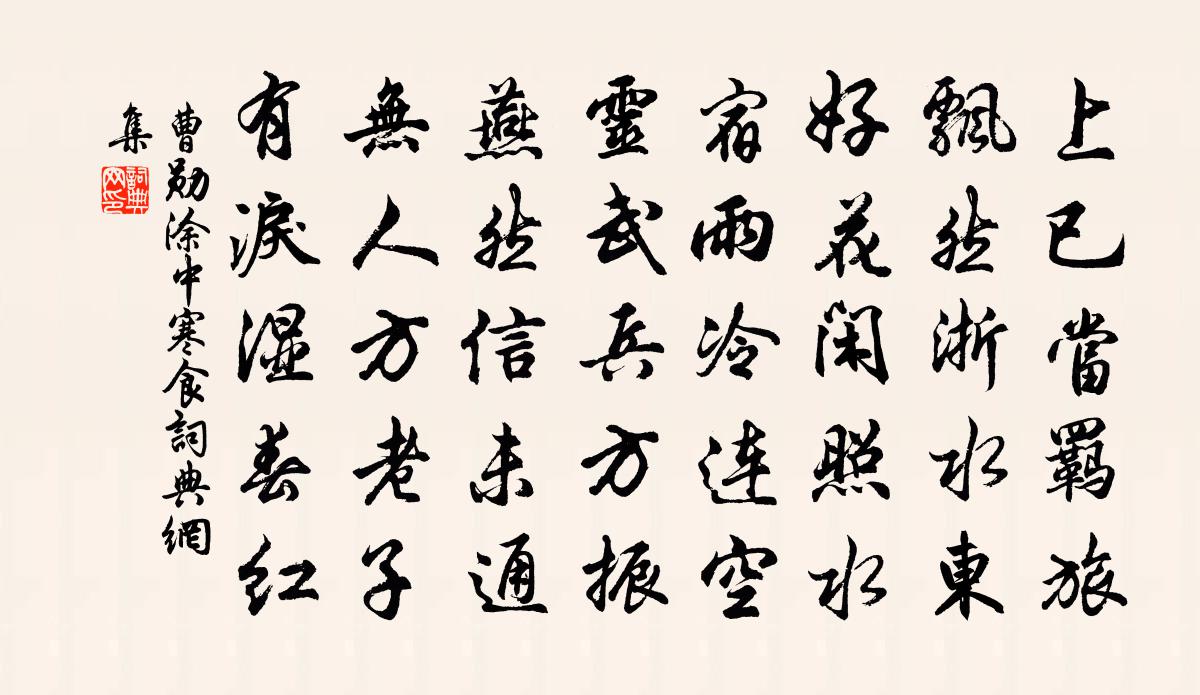 上巳當羈旅
飄然浙水東
好花閑照水
宿雨冷连空
靈武兵方振
燕然信未通
無人方老子
有淚濕春红
曹勛涂中寒食詞典網
集
詞典
网印